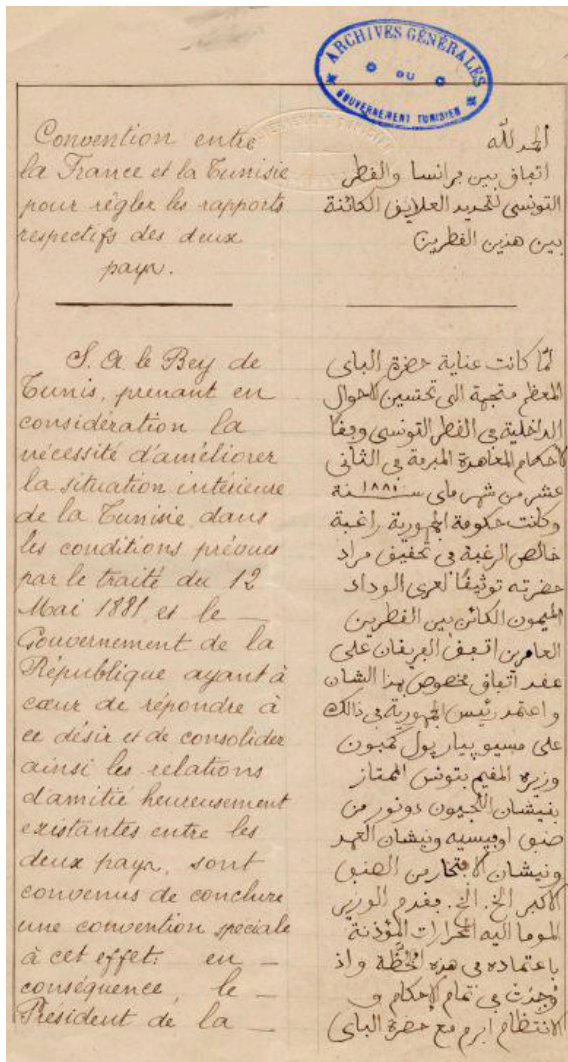 ARCHIVES GÉNÉRALES
DU
GOUVERNEMENT TUNISIEN
Convention entre
la France et la Tunisie
pour régler les rapports
respectifs des deux
pays.
S. A. le Bey de
Tunis, prenant en
considération la
nécessité d'améliorer
la situation intérieure
de la Tunisie, dans
les conditions prévues
par le traité du 12
Mai 1881, et le —
Gouvernement de la
République ayant à
cœur de répondre à
ce désir et de consolider
ainsi les relations
d'amitié heureusement
existantes entre les
deux pays, sont
convenus de conclure
une convention speciale
à cet effet: en —
conséquence, le —
Président de la —
الحمد لله
اتفاق بين فرانسا والقطر
التونسي لتحديد العلايق الكائنة
بين هذين القطرين
لمّا كانت عناية حضرة الباي
المعظم متجهة الى تحسين الاحوال
الداخلية في القطر التونسي وفقًا
لاحكام المعاهدة المبرمة في الثاني
عشر من شهر ماي سنة ١٨٨١
وكانت حكومة الجمهورية راغبة
خالص الرغبة في تحقيق مراد
حضرته توثيقًا لعرى الوداد
الميمون الكائن بين القطرين
العامرين اتفق الفريقان على
عقد اتفاق مخصوص بهذا الشان
واعتمد رئيس الجمهورية في ذالك
على مسيو بيار پول كمبون
وزيره المقيم بتونس الممتاز
بنيشان اللجيون دونور من
صنف اوفيسيه ونيشان العهد
ونيشان الافتخار من الصنف
الاكبر الخ. الخ. فقدم الوزير
الموما اليه المحرارات المؤذنة
باعتماده في هذه الخطّة واذ
وُجدَت في تمام الاحكام و
الانتظام ابرم مع حضرة الباي